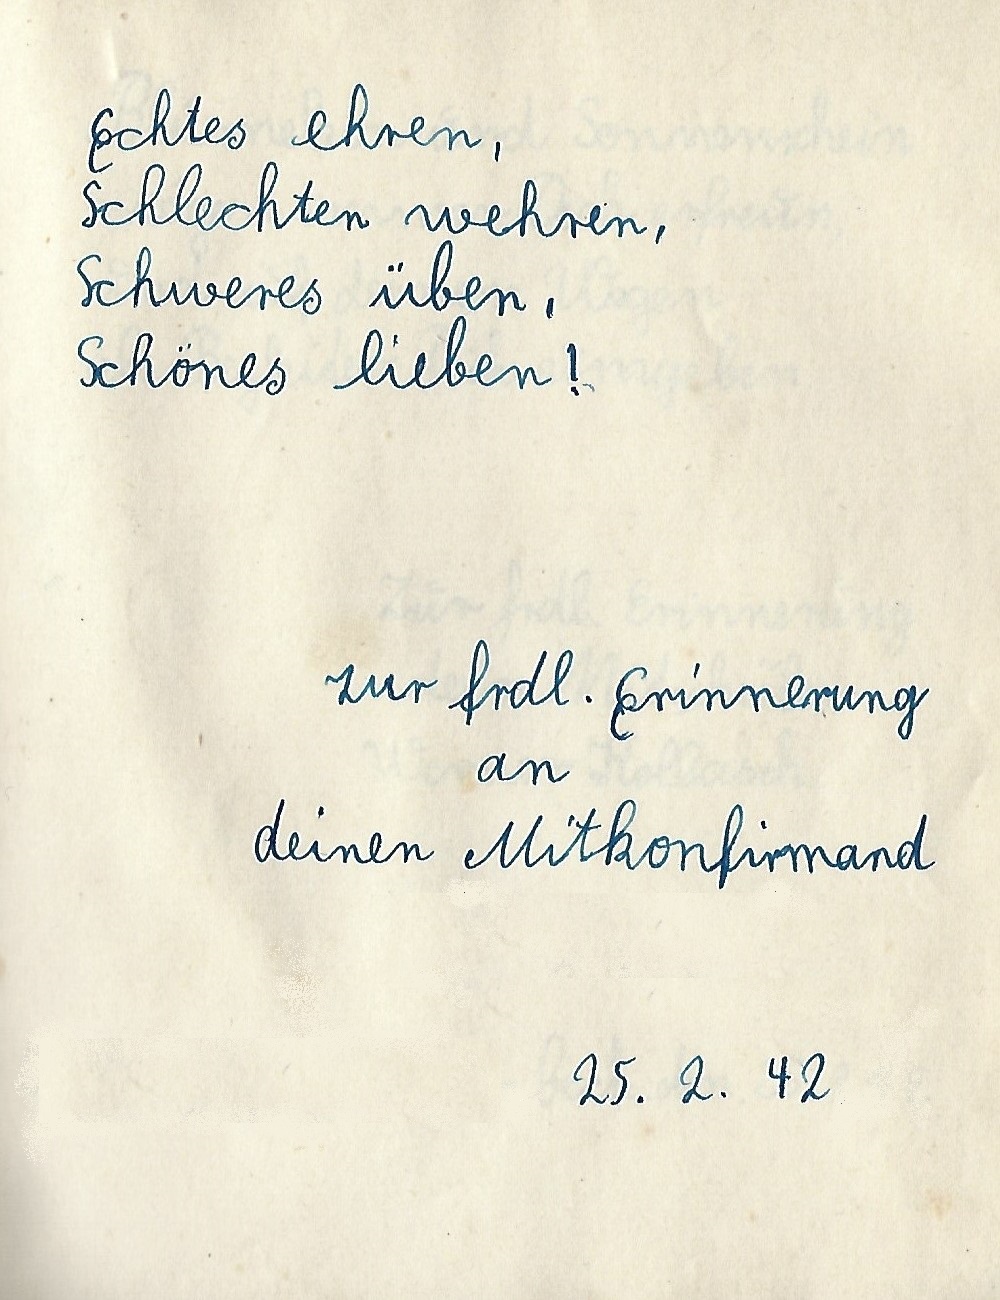 Echtes ehren,
Schlechten wehren,
Schweres üben,
Schönes lieben!
zur frdl. Erinnerung
an
deinen Mitkonfirmand
25. 2. 42